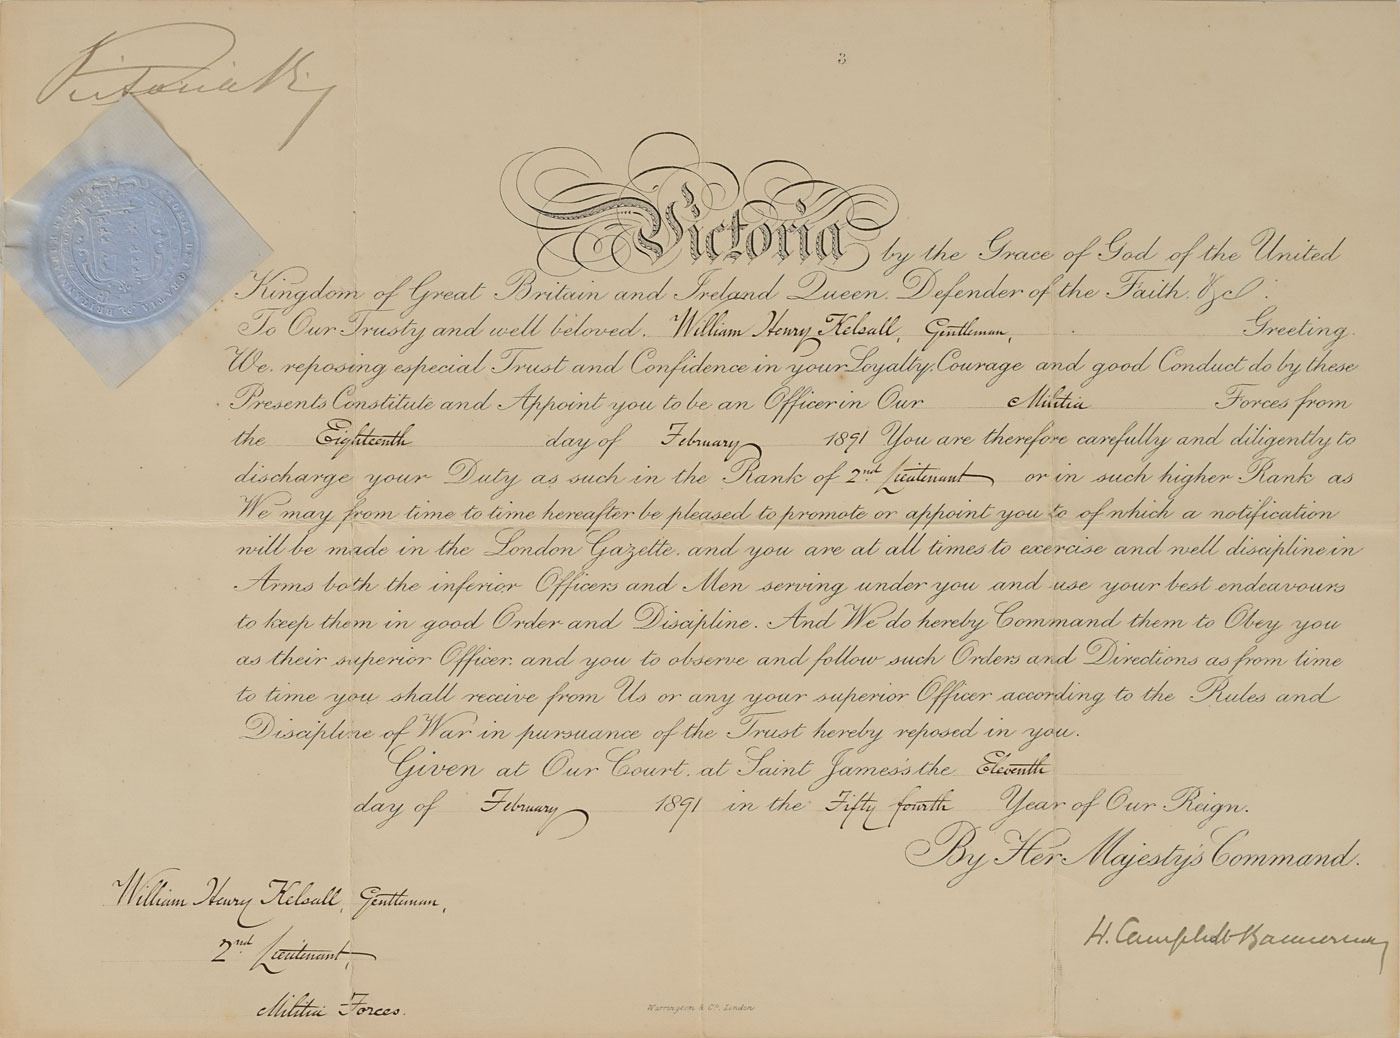 Victoria R
3
Victoria by the Grace of God of the United
Kingdom of Great Britain and Ireland Queen. Defender of the Faith. &c.
To Our Trusty and well beloved. William Henry Kelsall, Gentleman, Greeting.
We. reposing especial Trust and Confidence in your Loyalty, Courage and good Conduct do by these
Presents Constitute and Appoint you to be an Officer in Our Militia Forces from
the Eighteenth day of February 1891 You are therefore carefully and diligently to
discharge your Duty as such in the Rank of 2nd Lieutenant or in such higher Rank as
We may from time to time hereafter be pleased to promote or appoint you to of which a notification
will be made in the London Gazette. and you are at all times to exercise and well discipline in
Arms both the inferior Officers and Men serving under you and use your best endeavours
to keep them in good Order and Discipline. And We do hereby Command them to Obey you
as their superior Officer. and you to observe and follow such Orders and Directions as from time
to time you shall receive from Us or any your superior Officer according to the Rules and
Discipline of War in pursuance of the Trust hereby reposed in you.
Given at Our Court. at Saint James's the Eleventh
day of February 1891 in the Fifty fourth Year of Our Reign.
By Her Majesty's Command.
William Henry Kelsall, Gentleman,
2nd Lieutenant,
Militia Forces.
H. Campbell-Bannerman
Warrington & Co. London